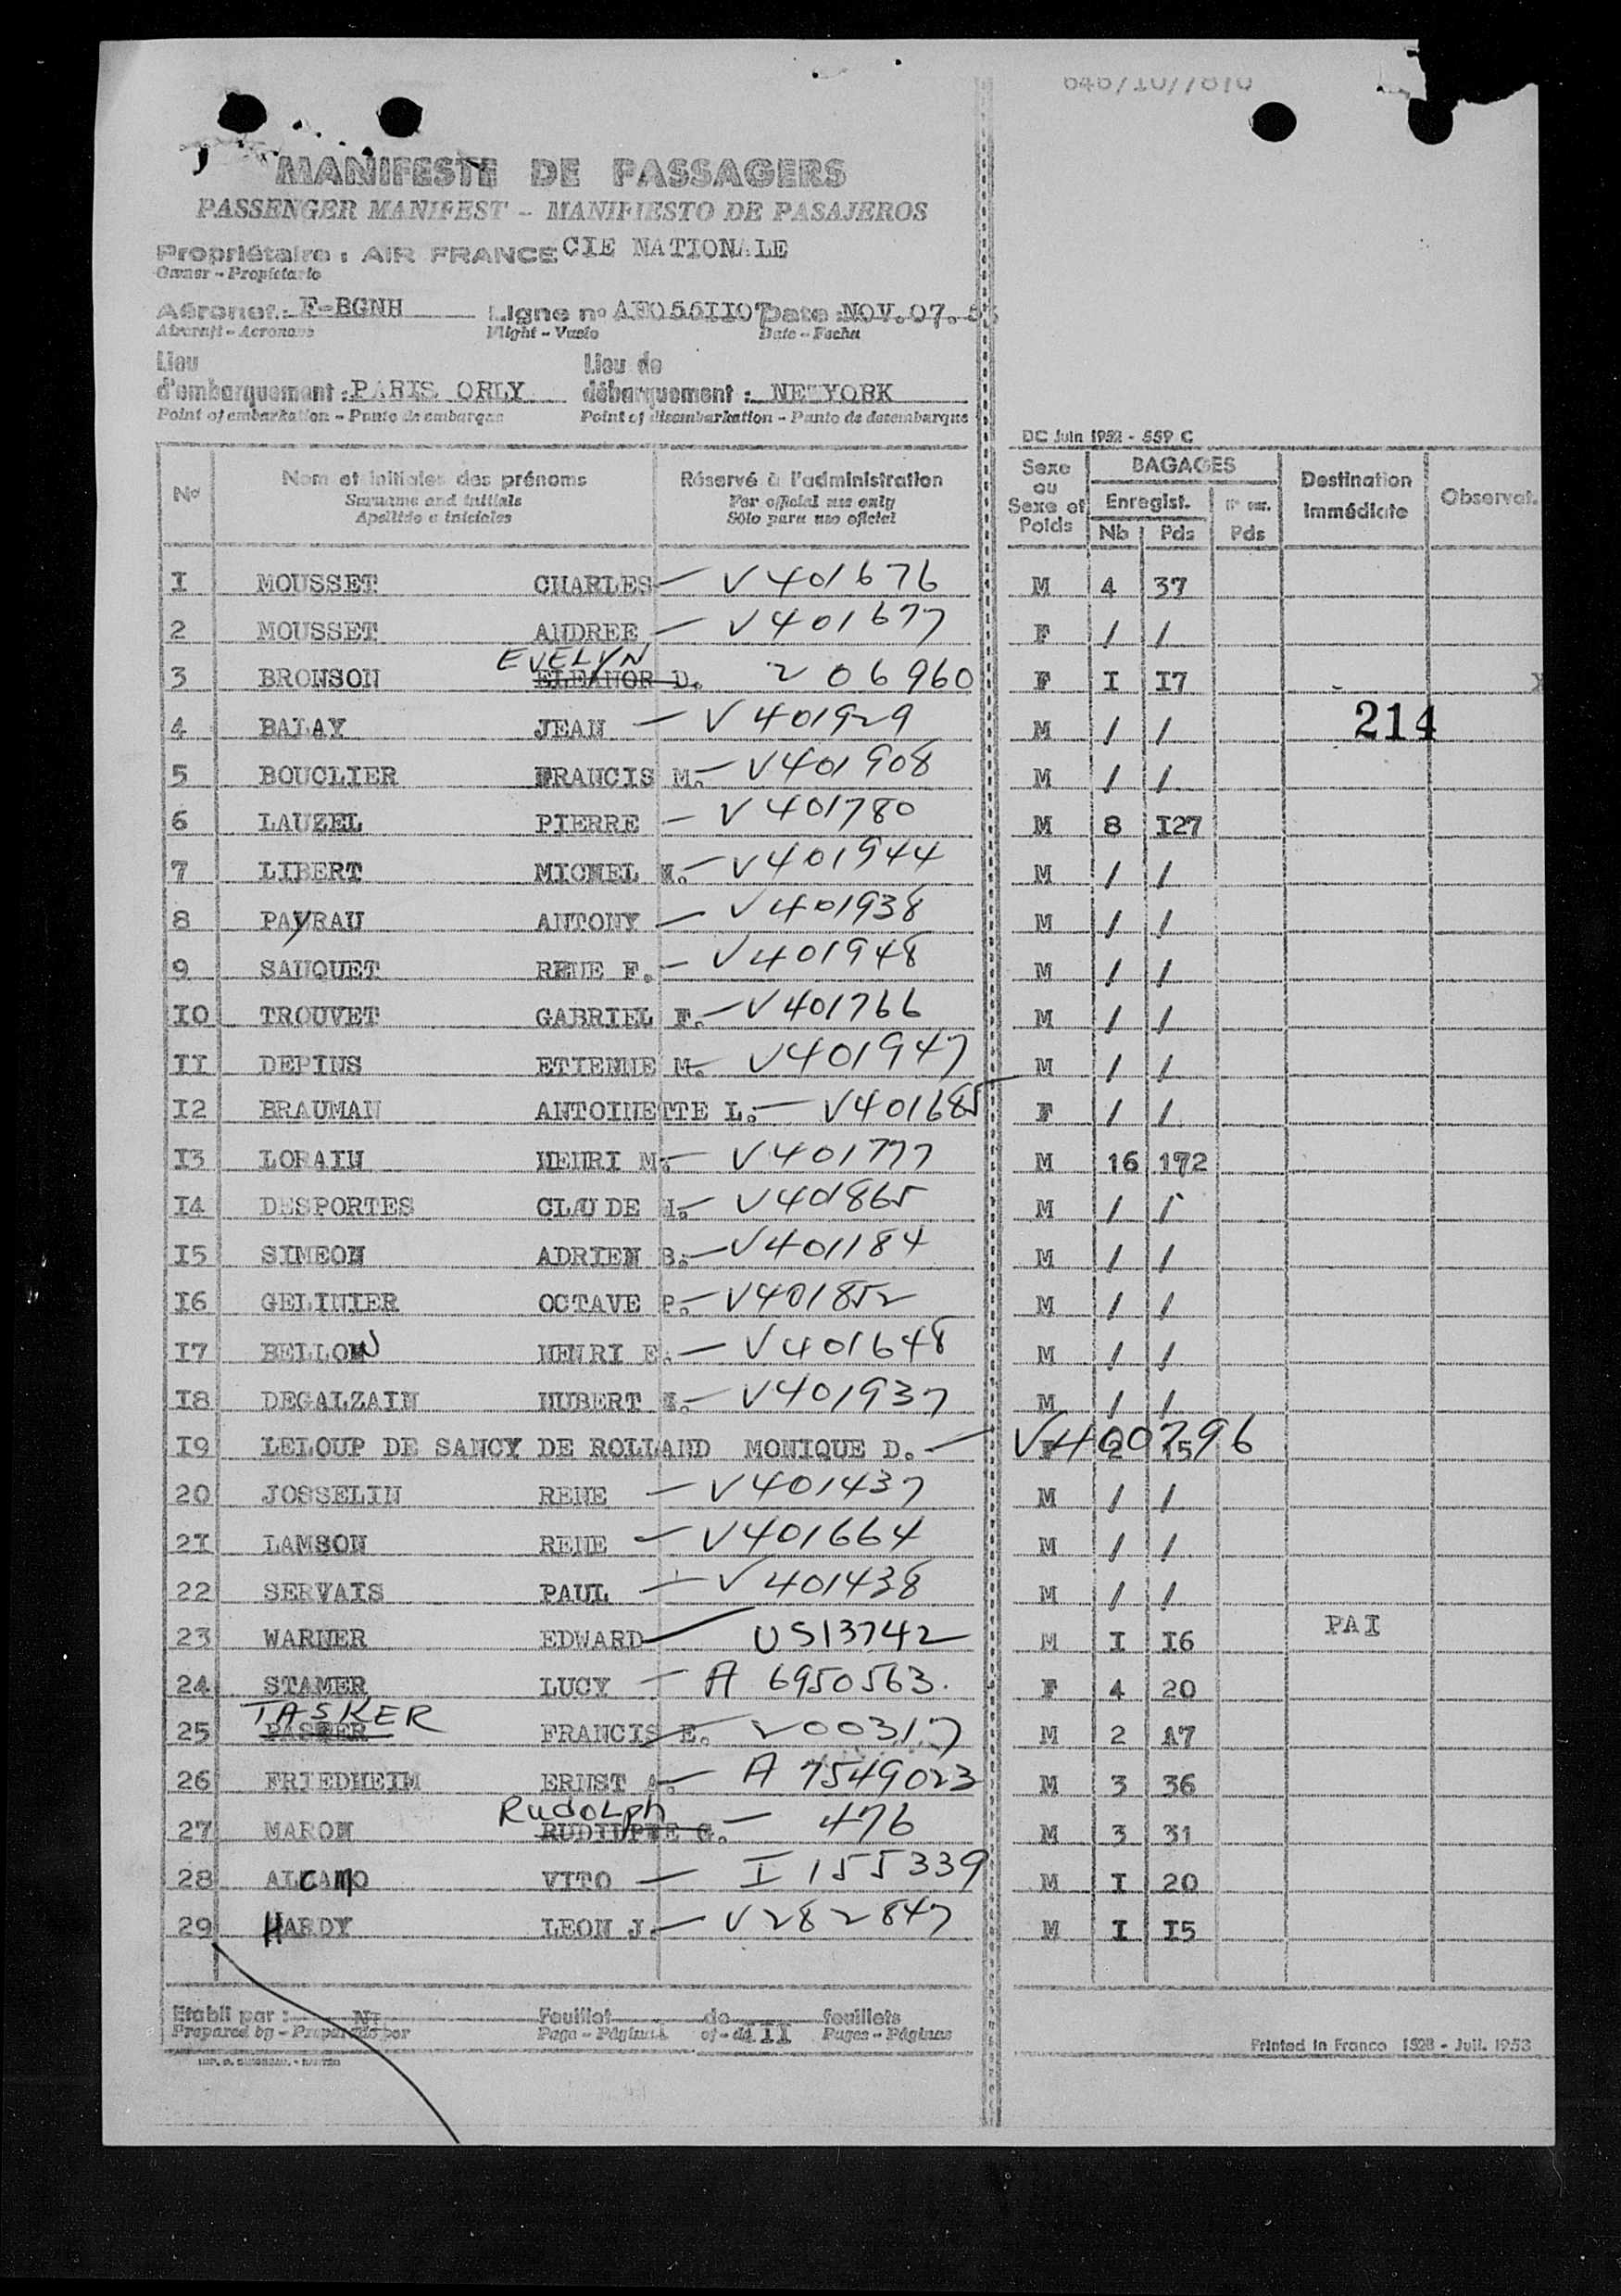 MANIFESTE DE PASSAGERS
PASSENGER MANIFEST - MANIFIESTO DE PASAJEROS
Propriétaire : AIR FRANCE CIE NATIONALE
Owner - Propietario
Aéronef : F-BGNH Ligne no AF055II07 Date : NOV.07.53
Aircraft - Aeronave Flight - Vuelo Date - Fecha
Lieu d'embarquement : PARIS ORLY Lieu de débarquement : NEWYORK
Point of embarkation - Punto de embarque Point of disembarkation - Punto de desembarque
DC Juin 1952 - 559 C
No Nom et initiales des prénoms Réservé à l'administration Sexe ou Sexe et Poids BAGAGES Destination immédiate Observat.
Surname and initials For official use only Enregist.
Apellido e iniciales Sólo para uso oficial Nb Pds Pds
I MOUSSET CHARLES — V401676 M 4 37
2 MOUSSET ANDREE — V401677 F / /
EVELYN
3 BRONSON ELEANOR D. 206960 F I I7
4 BALAY JEAN — V401929 M / / 214
5 BOUCLIER FRANCIS M. — V401908 M / /
6 LAUZEL PIERRE — V401780 M 8 I27
7 LIBERT MICHEL — V401944 M / /
8 PAYRAU ANTONY — V401938 M / /
9 SAUQUET RENE F. — V401948 M / /
I0 TROUVET GABRIEL F. — V401766 M / /
II DEPINS ETIENNE M. V401947 M / /
I2 BRAUMAN ANTOINETTE L. — V401685 F / /
I3 LORAIN HENRI M. — V401777 M 16 172
I4 DESPORTES CLAUDE — V401865 M / /
I5 SIMEON ADRIEN B. — V401184 M / /
I6 GELINIER OCTAVE P. — V401852 M / /
I7 BELLON HENRI E. — V401648 M / /
I8 DEGALZAIN HUBERT — V401937 M / /
I9 LELOUP DE SANCY DE ROLLAND MONIQUE D. — V400796 F 2 15
20 JOSSELIN RENE — V401437 M / /
2I LAMSON RENE — V401664 M / /
22 SERVAIS PAUL — V401438 M / /
23 WARNER EDWARD US13742 M I I6 PAI
24 STAMER LUCY — A 6950563. F 4 20
TASKER
25 FRANCIS E. 200317 M 2 A7
26 FRIEDHEIM ERNST A. — A 7549023 M 3 36
Rudolph
27 MARON G. — 476 M 3 31
28 ALCAMO VITO — I 155339 M I 20
29 HARDY LEON J. — V282847 M I I5
Etabli par : Feuillet de II feuillets
Prepared by - Preparado por Page - Página of - de Pages - Páginas
Printed in France 1528 - Juil. 1953